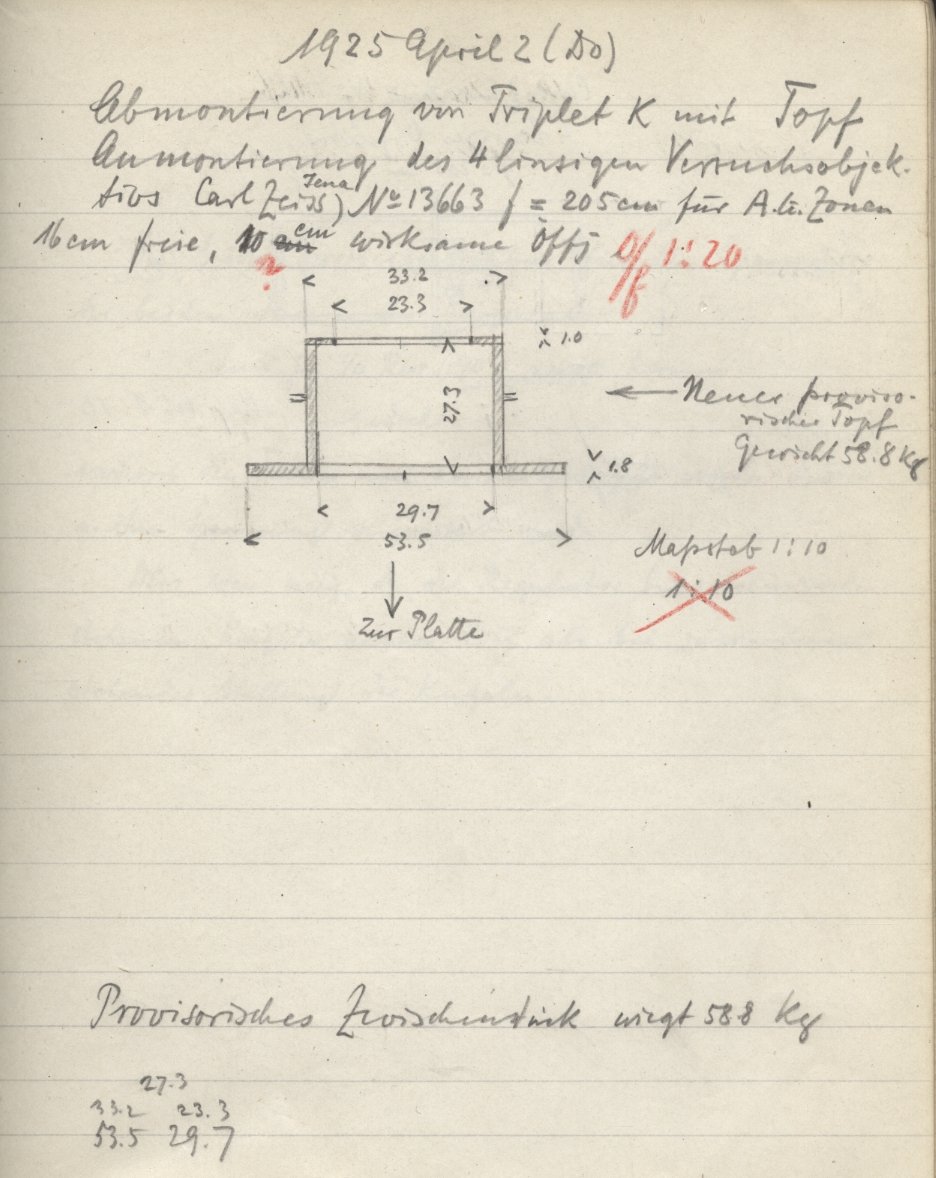 1925 April 2 (Do)
Abmontierung von Triplet K mit Topf
Anmontierung des 4 linsigen Versuchsobjek-
tivs Carl Zeiss Jena) No 13663 f = 205 cm für A.G. Zonen
16 cm freie, 10 cm wirksame Öffg O/f 1:20
?
33.2
23.3
1.0
27.3
← Neues proviso-
rischer Topf
Gewicht 58.8 Kg
1.8
29.7
53.5
Maßstab 1:10
1:10
Zur Platte
Provisorisches Zwischenstück wiegt 58.8 Kg
27.3
33.2 23.3
53.5 29.7